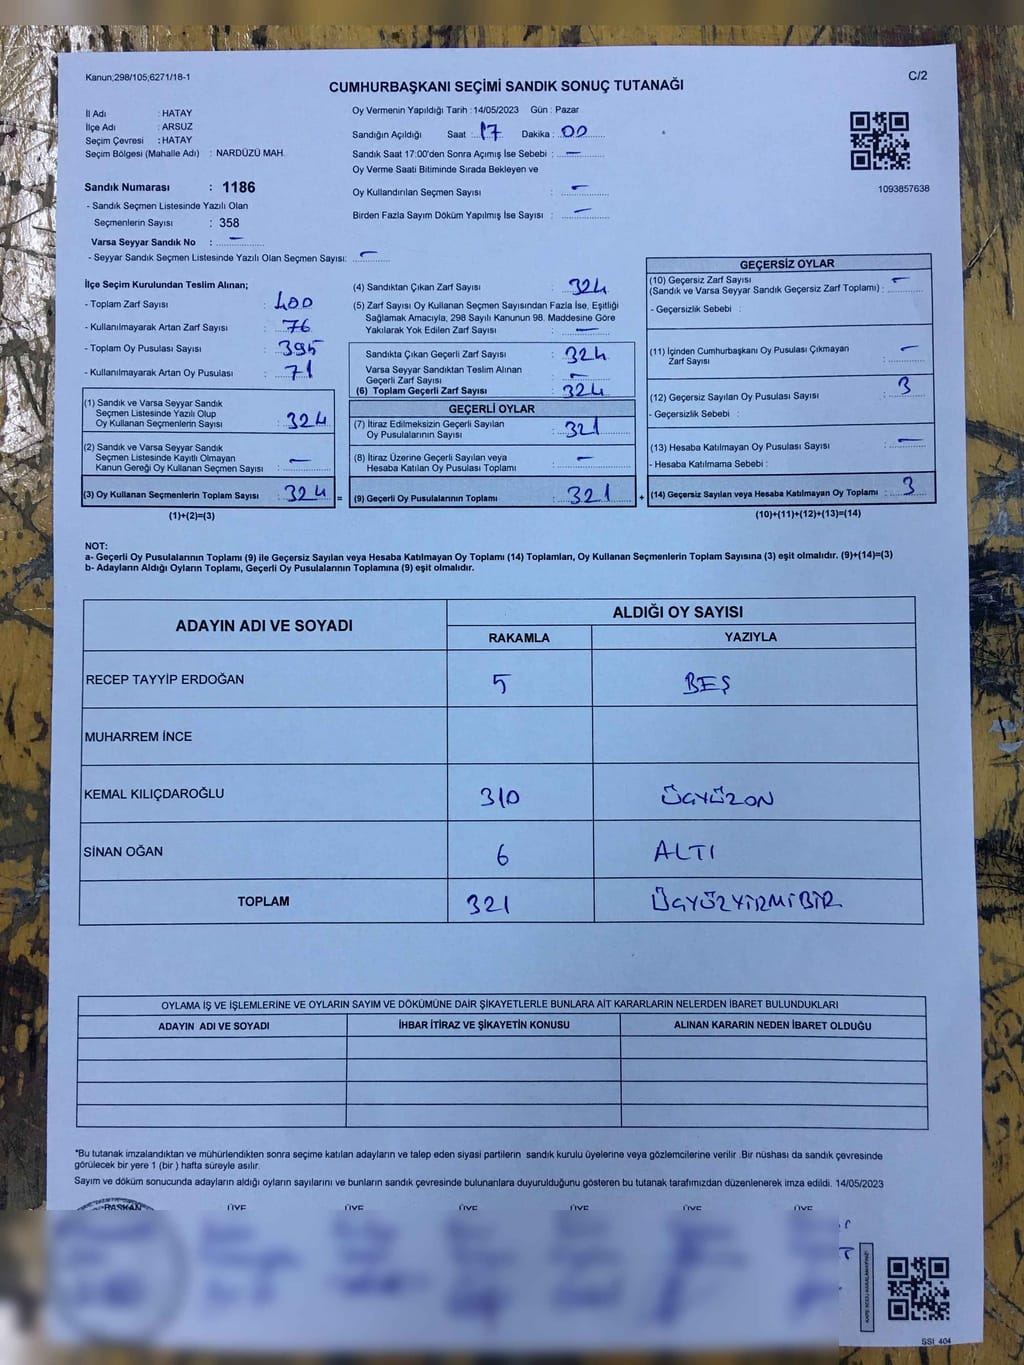 Kanun;298/105;6271/18-1
C/2
CUMHURBAŞKANI SEÇİMİ SANDIK SONUÇ TUTANAĞI
İl Adı : HATAY
İlçe Adı : ARSUZ
Seçim Çevresi : HATAY
Seçim Bölgesi (Mahalle Adı) : NARDÜZÜ MAH.
Sandık Numarası : 1186
- Sandık Seçmen Listesinde Yazılı Olan
Seçmenlerin Sayısı : 358
Varsa Seyyar Sandık No : –
- Seyyar Sandık Seçmen Listesinde Yazılı Olan Seçmen Sayısı: –
Oy Vermenin Yapıldığı Tarih : 14/05/2023 Gün : Pazar
Sandığın Açıldığı Saat : 17 Dakika : 00
Sandık Saat 17:00'den Sonra Açımış İse Sebebi : –
Oy Verme Saati Bitiminde Sırada Bekleyen ve
Oy Kullandırılan Seçmen Sayısı : –
Birden Fazla Sayım Döküm Yapılmış İse Sayısı : –
1093857638
İlçe Seçim Kurulundan Teslim Alınan;
- Toplam Zarf Sayısı : 400
- Kullanılmayarak Artan Zarf Sayısı : 76
- Toplam Oy Pusulası Sayısı : 395
- Kullanılmayarak Artan Oy Pusulası : 71
(1) Sandık ve Varsa Seyyar Sandık
Seçmen Listesinde Yazılı Olup
Oy Kullanan Seçmenlerin Sayısı : 324
(2) Sandık ve Varsa Seyyar Sandık
Seçmen Listesinde Kayıtlı Olmayan
Kanun Gereği Oy Kullanan Seçmen Sayısı : –
(3) Oy Kullanan Seçmenlerin Toplam Sayısı : 324
(1)+(2)=(3)
(4) Sandıktan Çıkan Zarf Sayısı : 324
(5) Zarf Sayısı Oy Kullanan Seçmen Sayısından Fazla İse, Eşitliği
Sağlamak Amacıyla, 298 Sayılı Kanunun 98. Maddesine Göre
Yakılarak Yok Edilen Zarf Sayısı : –
Sandıkta Çıkan Geçerli Zarf Sayısı : 324
Varsa Seyyar Sandıktan Teslim Alınan
Geçerli Zarf Sayısı : –
(6) Toplam Geçerli Zarf Sayısı : 324
GEÇERLİ OYLAR
(7) İtiraz Edilmeksizin Geçerli Sayılan
Oy Pusulalarının Sayısı : 321
(8) İtiraz Üzerine Geçerli Sayılan veya
Hesaba Katılan Oy Pusulası Toplamı : –
= (9) Geçerli Oy Pusulalarının Toplamı : 321 +
GEÇERSİZ OYLAR
(10) Geçersiz Zarf Sayısı
(Sandık ve Varsa Seyyar Sandık Geçersiz Zarf Toplamı) : –
- Geçersizlik Sebebi :
(11) İçinden Cumhurbaşkanı Oy Pusulası Çıkmayan
Zarf Sayısı : –
(12) Geçersiz Sayılan Oy Pusulası Sayısı : 3
- Geçersizlik Sebebi :
(13) Hesaba Katılmayan Oy Pusulası Sayısı : –
- Hesaba Katılmama Sebebi :
(14) Geçersiz Sayılan veya Hesaba Katılmayan Oy Toplamı : 3
(10)+(11)+(12)+(13)=(14)
NOT:
a- Geçerli Oy Pusulalarının Toplamı (9) ile Geçersiz Sayılan veya Hesaba Katılmayan Oy Toplamı (14) Toplamları, Oy Kullanan Seçmenlerin Toplam Sayısına (3) eşit olmalıdır. (9)+(14)=(3)
b- Adayların Aldığı Oyların Toplamı, Geçerli Oy Pusulalarının Toplamına (9) eşit olmalıdır.
ADAYIN ADI VE SOYADI ALDIĞI OY SAYISI
RAKAMLA YAZIYLA
RECEP TAYYİP ERDOĞAN 5 BEŞ
MUHARREM İNCE
KEMAL KILIÇDAROĞLU 310 ÜÇYÜZON
SİNAN OĞAN 6 ALTI
TOPLAM 321 ÜÇYÜZYİRMİBİR
OYLAMA İŞ VE İŞLEMLERİNE VE OYLARIN SAYIM VE DÖKÜMÜNE DAİR ŞİKAYETLERLE BUNLARA AİT KARARLARIN NELERDEN İBARET BULUNDUKLARI
ADAYIN ADI VE SOYADI İHBAR İTİRAZ VE ŞİKAYETİN KONUSU ALINAN KARARIN NEDEN İBARET OLDUĞU
*Bu tutanak imzalandıktan ve mühürlendikten sonra seçime katılan adayların ve talep eden siyasi partilerin sandık kurulu üyelerine veya gözlemcilerine verilir .Bir nüshası da sandık çevresinde
görülecek bir yere 1 (bir ) hafta süreyle asılır.
Sayım ve döküm sonucunda adayların aldığı oyların sayılarını ve bunların sandık çevresinde bulunanlara duyurulduğunu gösteren bu tutanak tarafımızdan düzenlenerek imza edildi. 14/05/2023
BAŞKAN ÜYE ÜYE ÜYE ÜYE ÜYE ÜYE
SSI_404